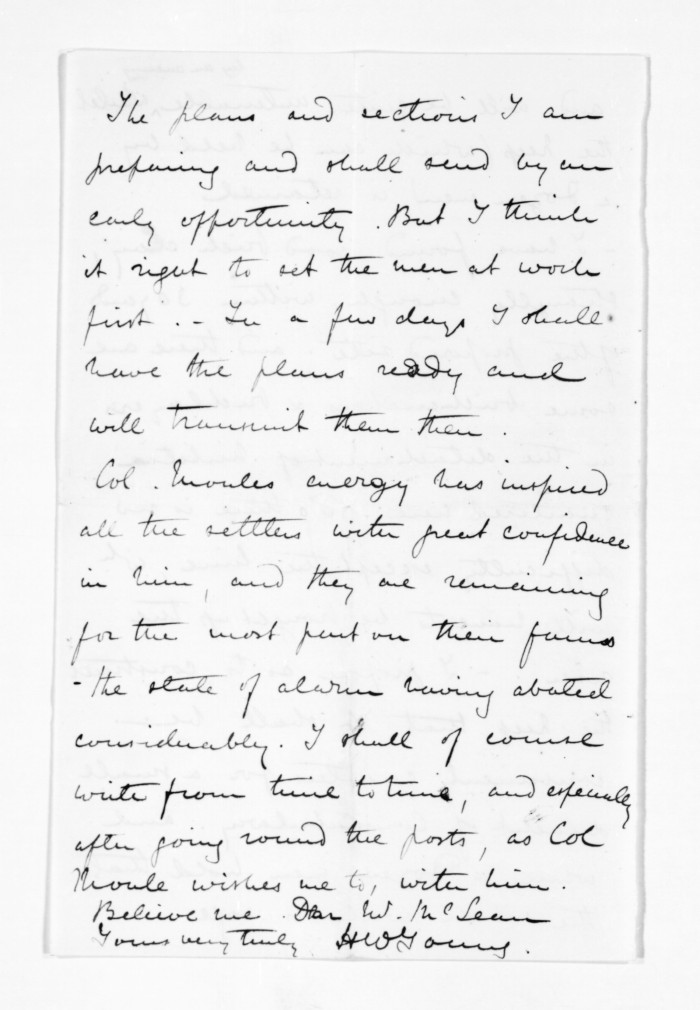 The plans and sections I am
preparing and shall send by an
early opportunity. But I think
it right to set the men at work
first. - In a few days I shall
have the plans ready and
will transmit them then.
Col. Moules energy has inspired
all the settlers with great confidence
in him, and they are remaining
for the most part on their farms
- the state of alarm having abated
considerably. I shall of course
write from time to time, and especially
after going round the posts, as Col
Moule wishes me to, with him.
Believe me Dear Mr. McLean
Yours very truly HWYoung.